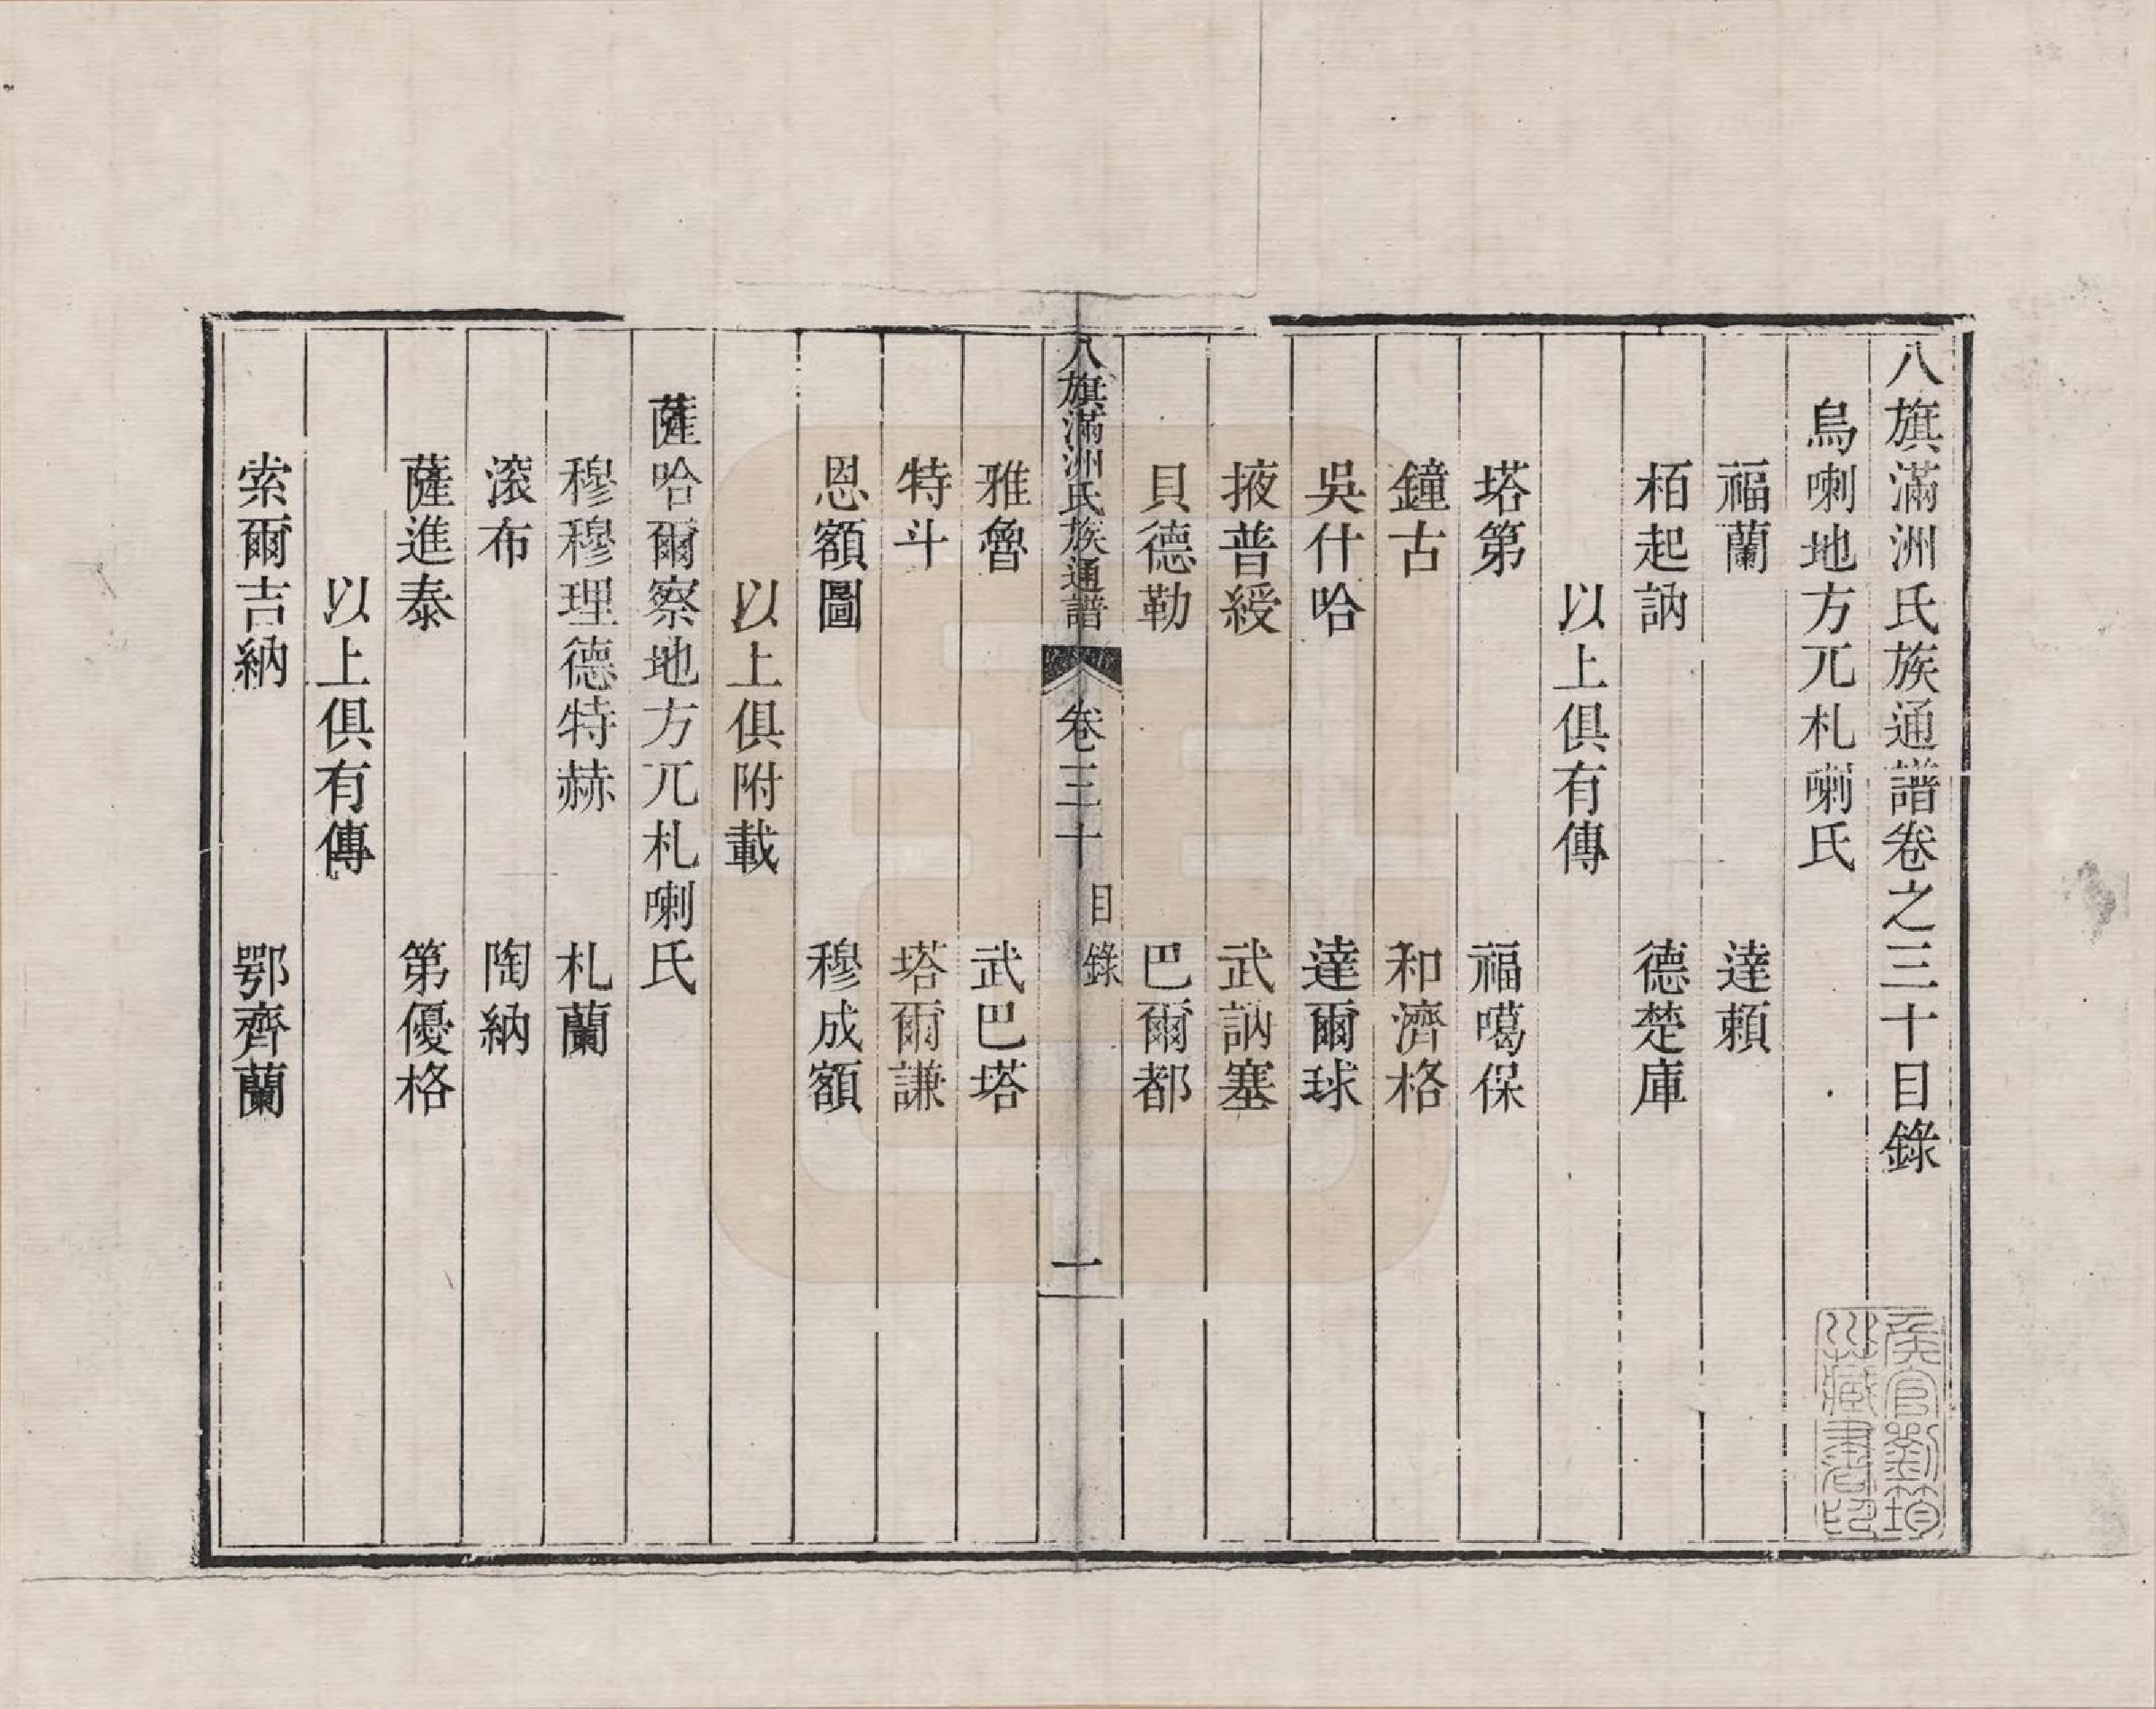 八旗滿洲氏族通譜卷之三十目錄
烏喇地方兀札喇氏
福蘭　達賴
栢起訥　德楚庫
以上俱有傳
塔第　福噶保
鐘古　和濟格
吳什哈　達爾球
掖普綬　武訥塞
貝德勒　巴爾都
八旗滿洲氏族通譜　卷三十　目錄　一
雅魯　武巴塔
特斗　塔爾謙
恩額圖　穆成額
以上俱附載
薩哈爾察地方兀札喇氏
穆穆理德特赫　札蘭
滾布　陶納
薩進泰　第優格
以上俱有傳
索爾吉納　鄂齊蘭
侯官劉筠
川藏書印